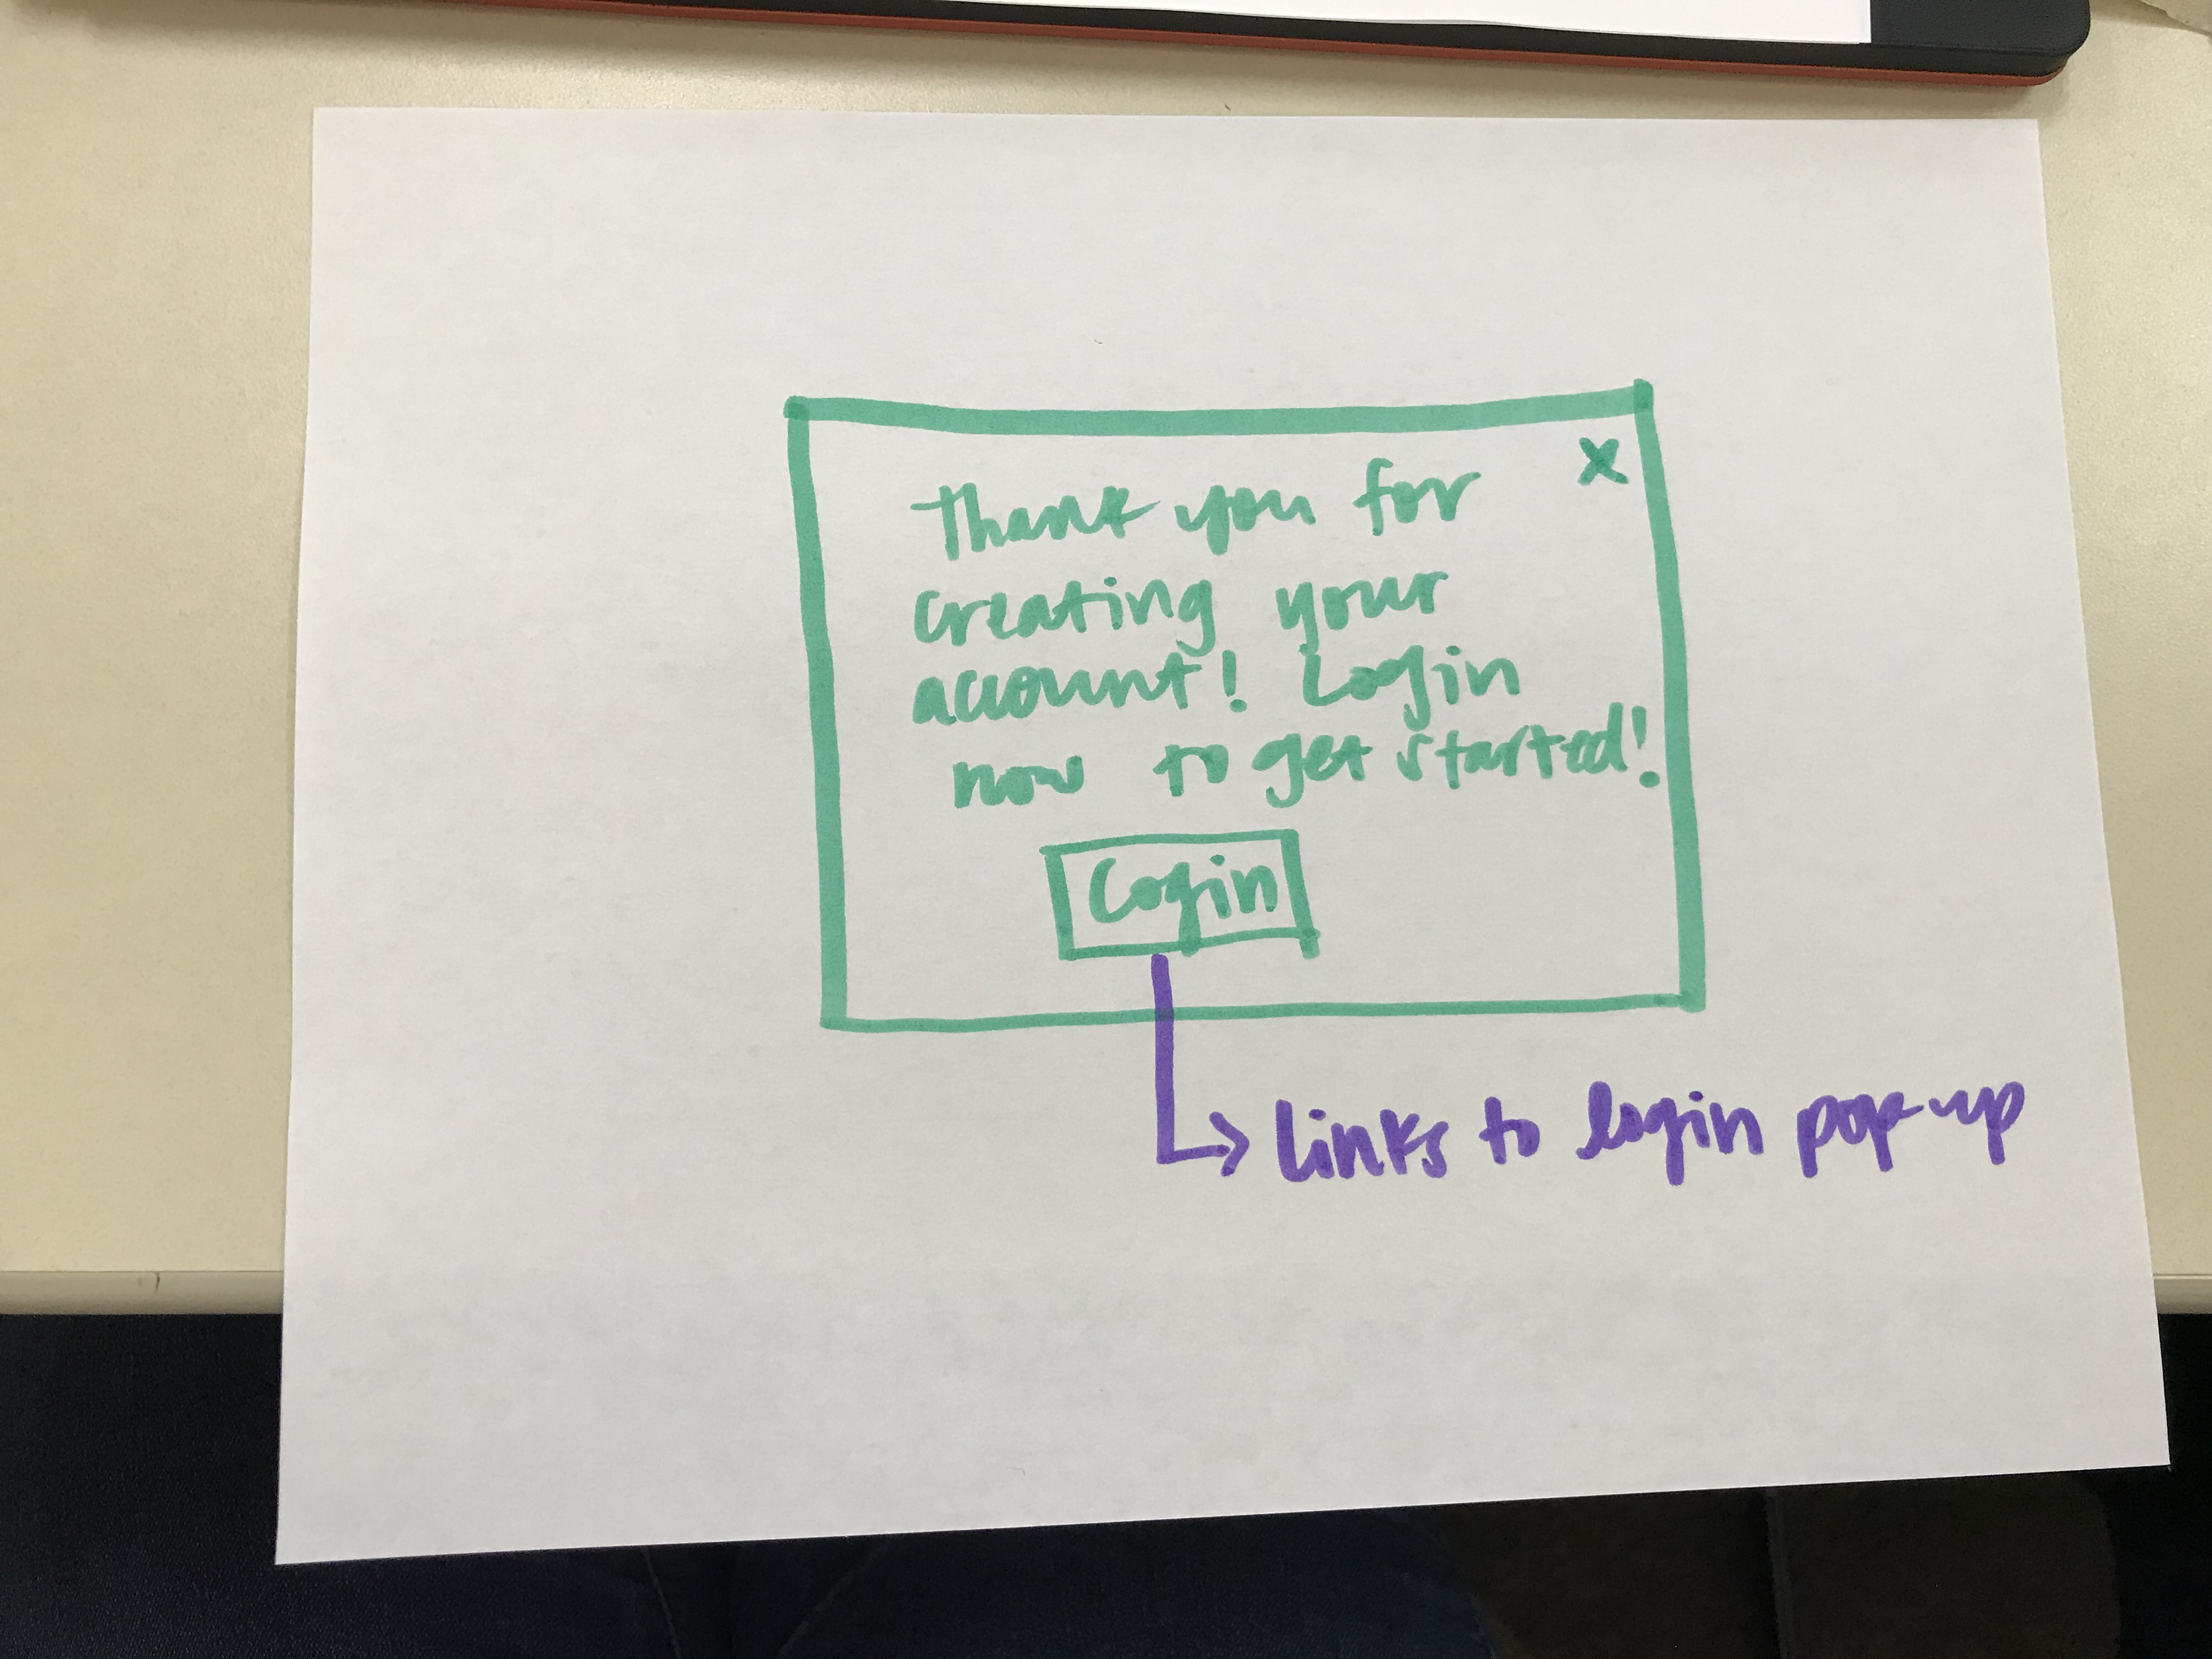 x
Thank you for
creating your
account! Login
now to get started!
Login
links to login pop-up